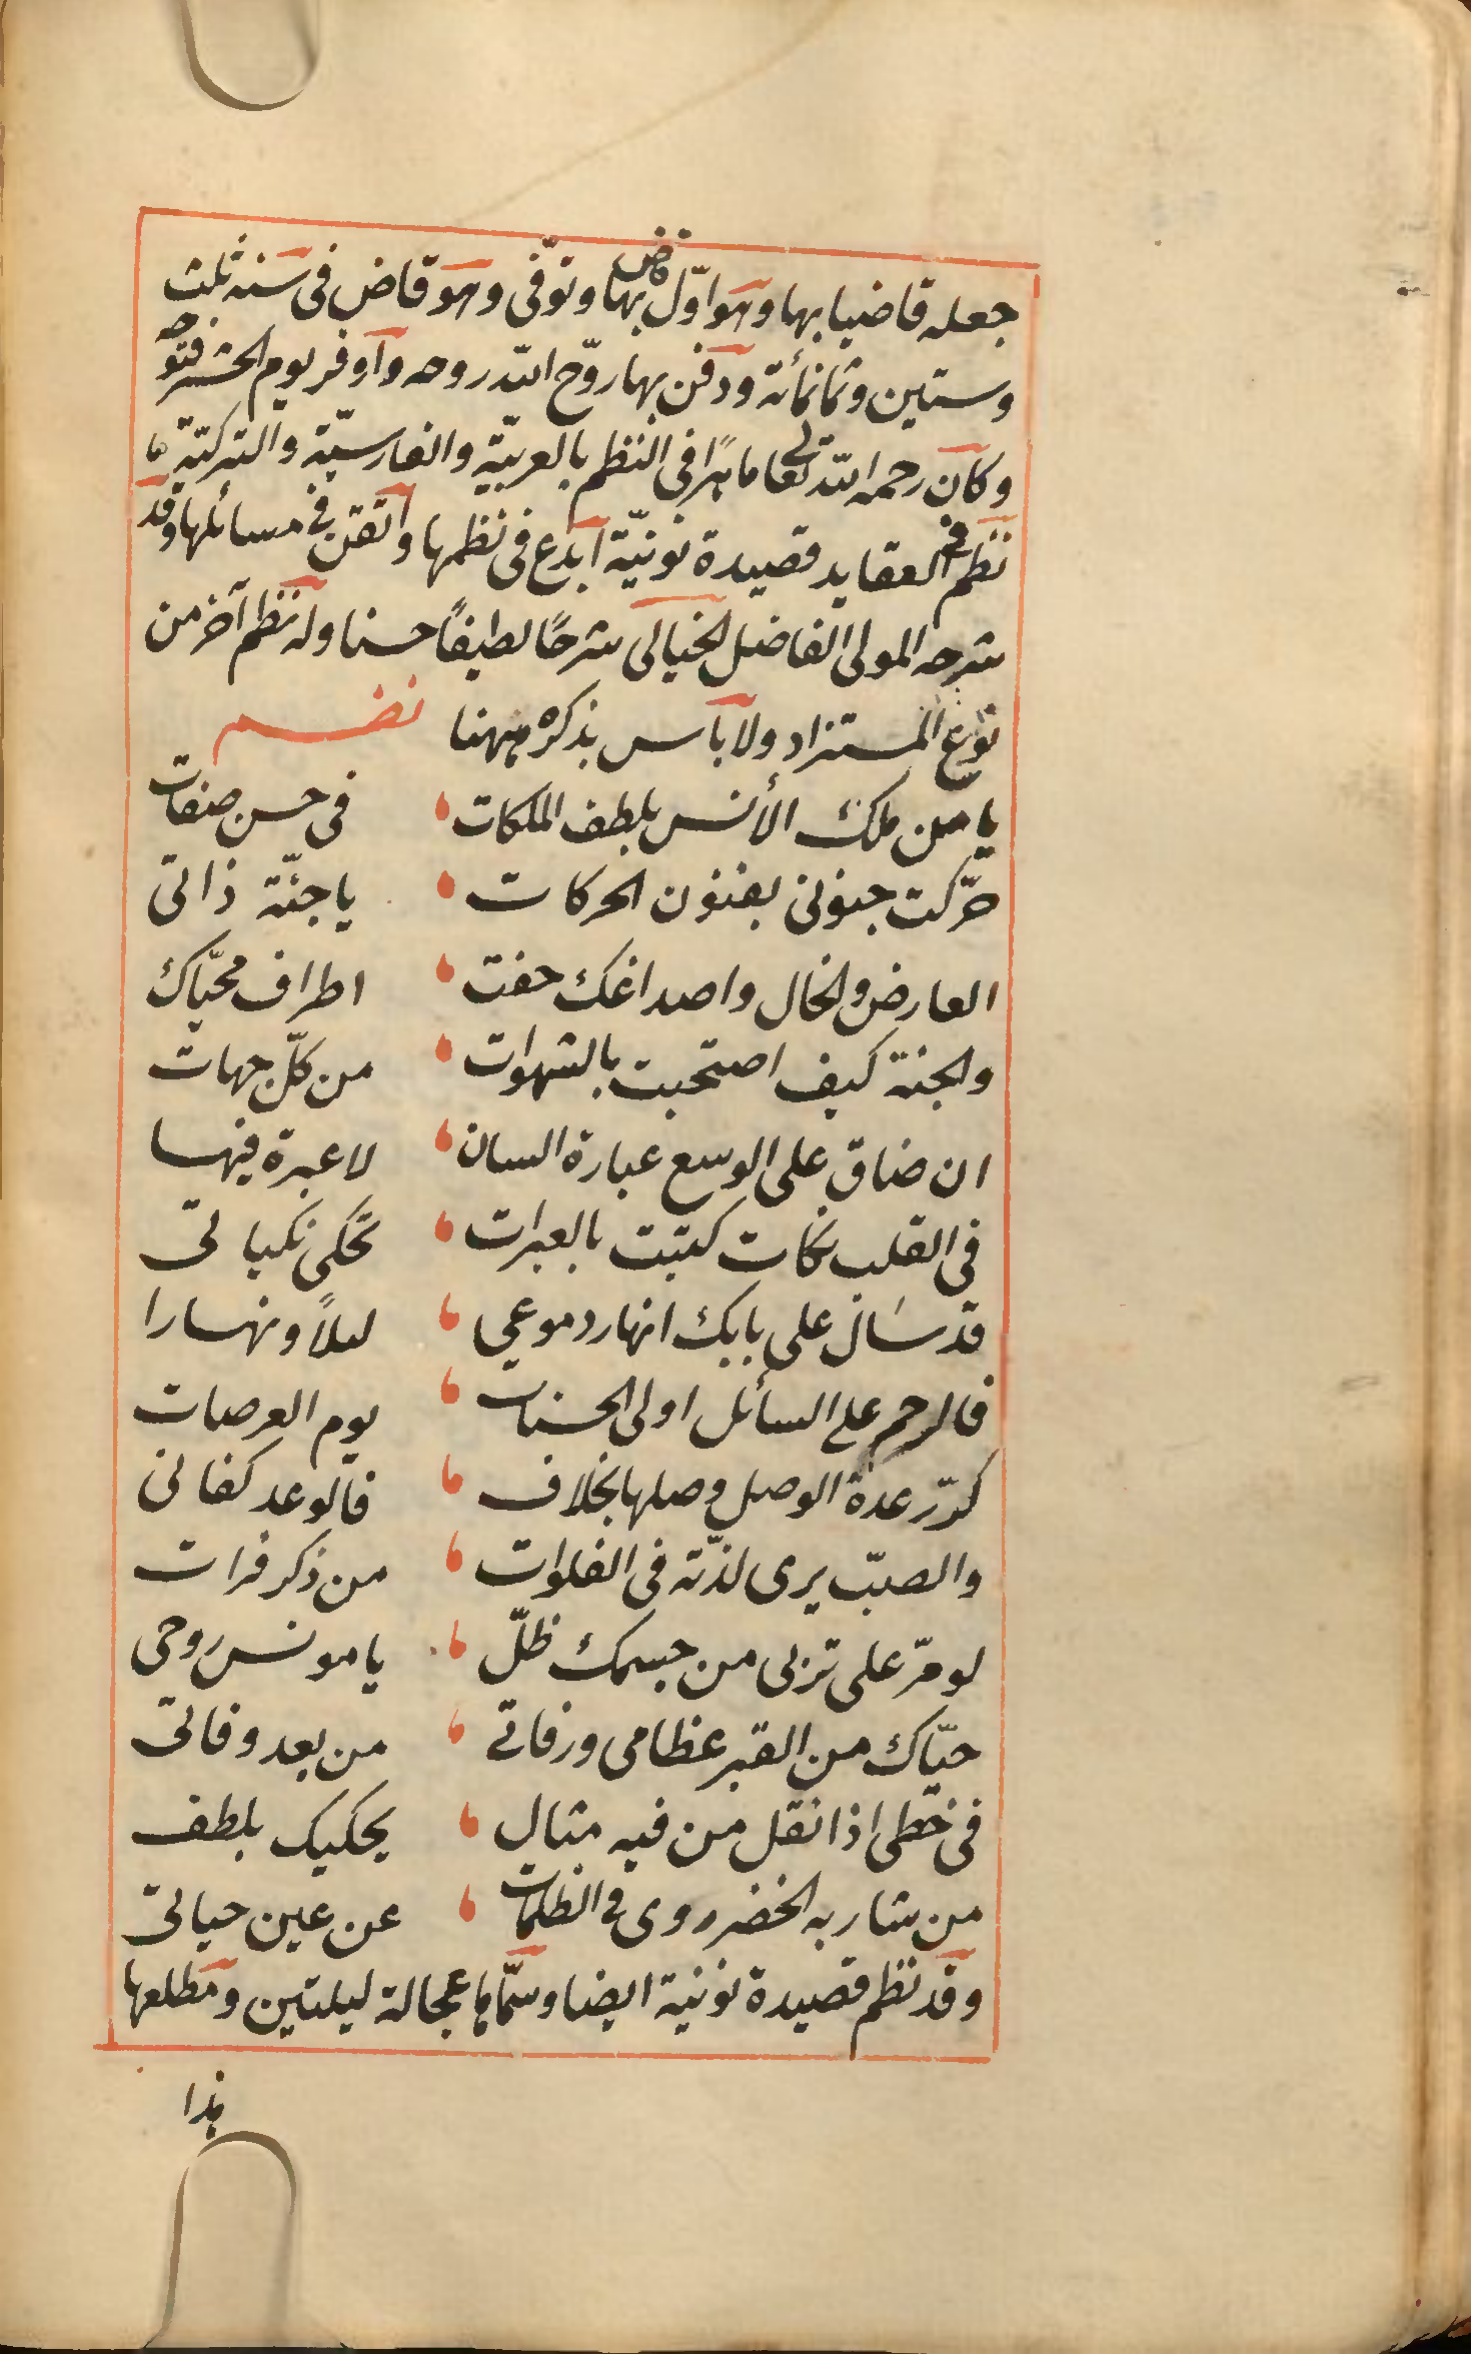 جعله قاضيا بها وهو اوّل قاض بها وتوفّى وهو قاض فى سنه ثلث
وستين وثمانمأئة ودفن بها روّح الله روحه واوفر يوم الحشر فتوحه
وكان رحمه الله تعالى ماهرًا فى النظم بالعربيّة والفارسيّة والتركيّة
نظم فى العقايد قصيدة نونيّة ابدع فى نظمها واتقن فى مسائلها وقد
شرحه المولى الفاضل الخيالى شرحًا لطيفًا حسنا وله نظم آخر من
نوع المستزاد ولا بأس بذكره ههنا نضم
يا من ملك الأنس بلطف الملكات فى حسن صفات
حرّكت جنونى بفنون الحركات يا جنّة ذاتى
العارض والخال واصداغك حفت اطراف محيّاك
والجنة كيف اصتحبت بالشهوات من كلّ جهات
ان ضاق على الوسع عبارة السان لا عبرة فيها
فى القلب نكات كتبت بالعبرات تحكى نكباتى
قد سال على بابك انهار دموعى ليلاً ونهارا
فالرحم على السائل اولى الحسنات يوم العرصات
كرّر عدة الوصل وصلها بخلاف فالوعد كفانى
والصبّ يرى لذّته فى الفلوات من ذكر فرات
لو مرّ على تربى من جسمك ظلّ يا مونس روحى
حيّاك من القبر عظامى ورفاتى من بعد وفاتى
فى خطى اذا نقل من فيه مثال يحكيك بلطف
من شاربه الخضر روى فى الظلمات عن عين حياتى
وقد نظم قصيدة نونية ايضا وسمّاها عجالة ليلتين ومطلعها
هذا